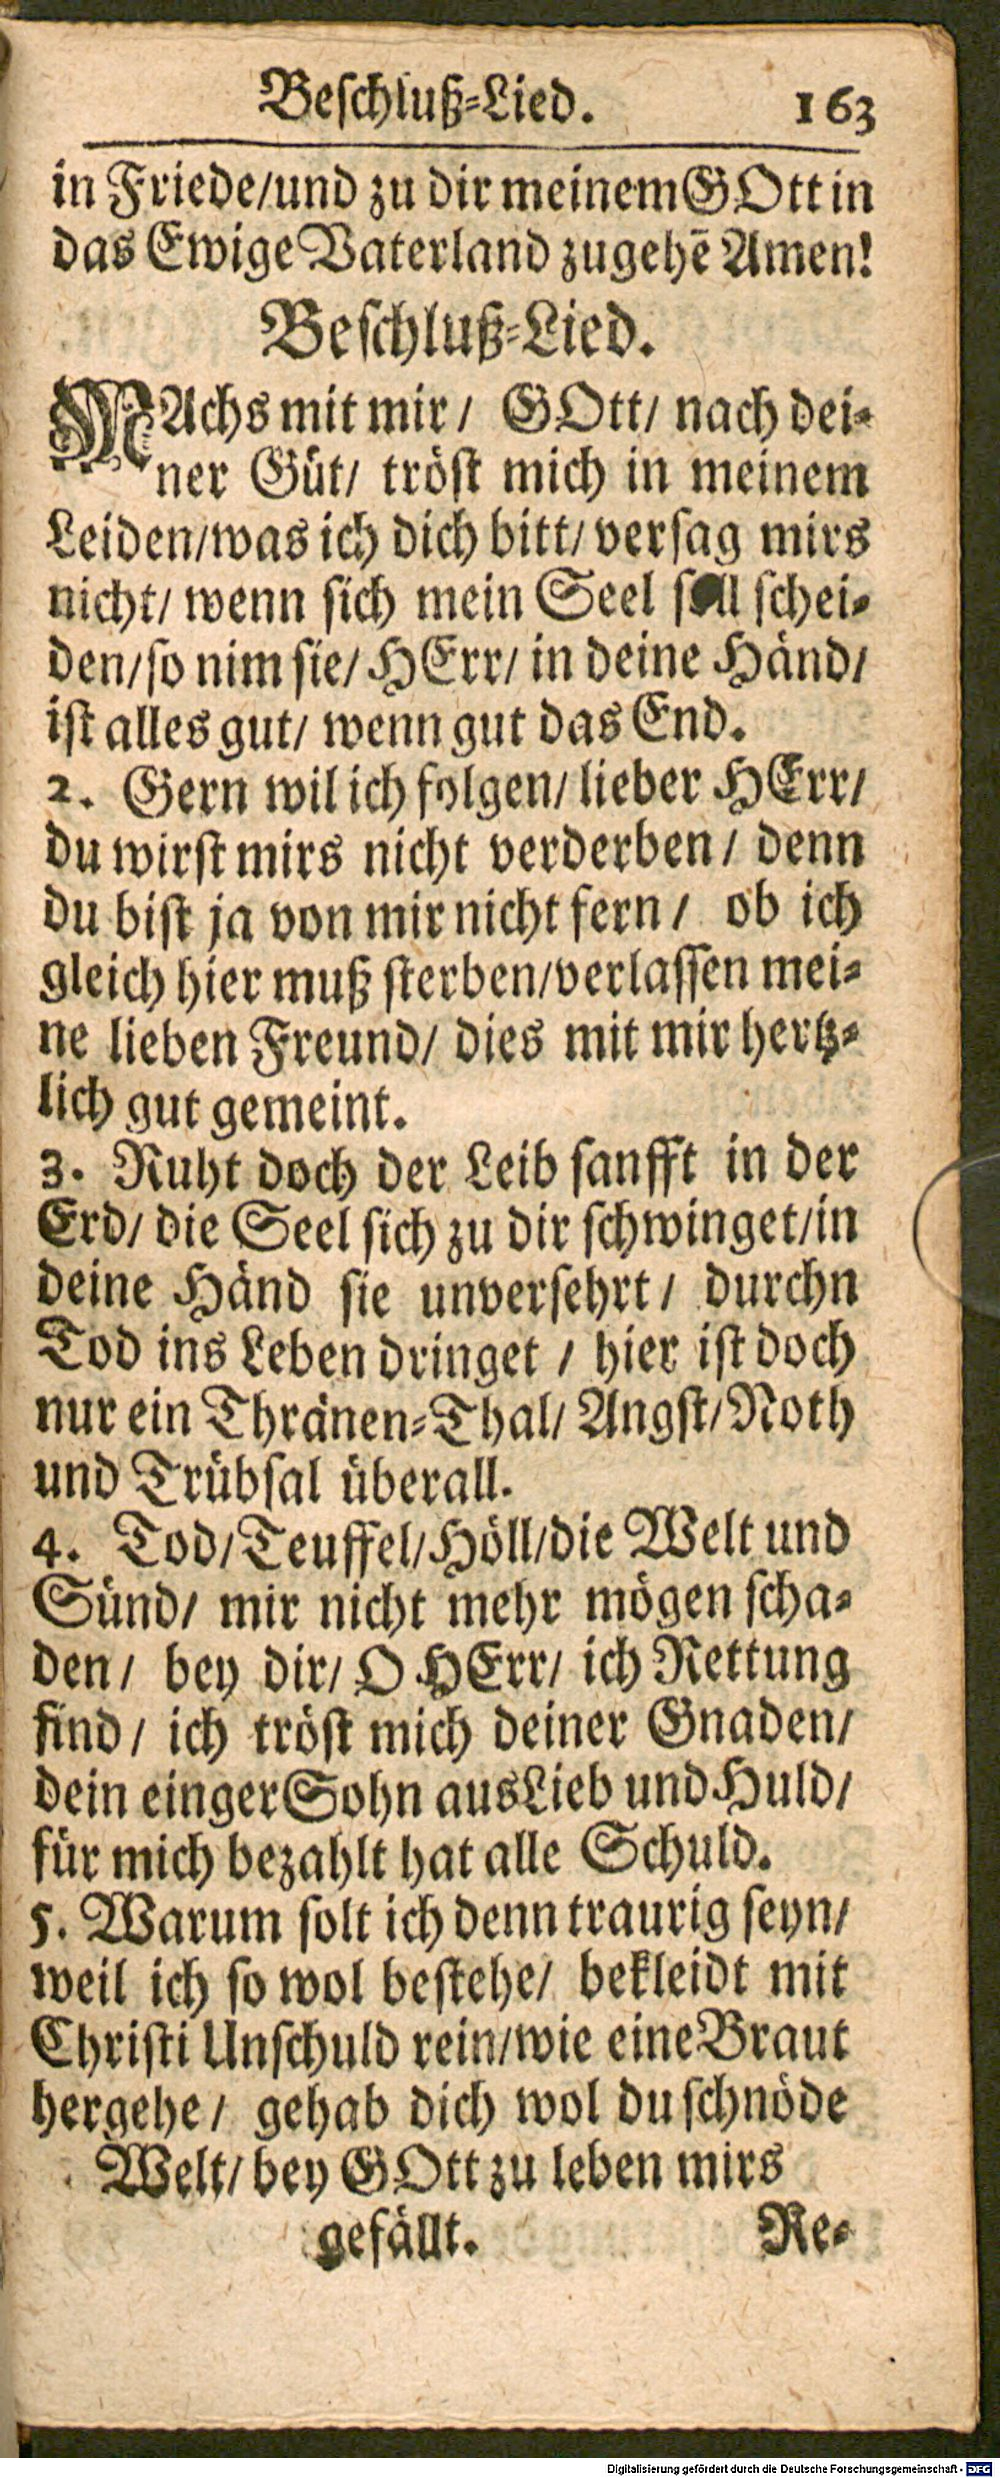 Beſchluß-Lied. 163
in Friede/und zu dir meinem GOtt in
das Ewige Vaterland zugehē Amen!
Beſchluß-Lied.
MAchs mit mir/ GOtt/ nach dei-
ner Güt/ tröſt mich in meinem
Leiden/was ich dich bitt/ verſag mirs
nicht/ wenn ſich mein Seel ſoll ſchei-
den/ſo nim ſie/ HErr/ in deine Händ/
iſt alles gut/ wenn gut das End.
2. Gern wil ich folgen/ lieber HErr/
du wirſt mirs nicht verderben/ denn
du biſt ja von mir nicht fern/ ob ich
gleich hier muß ſterben/verlaſſen mei-
ne lieben Freund/ dies mit mir hertz-
lich gut gemeint.
3. Ruht doch der Leib ſanfft in der
Erd/ die Seel ſich zu dir ſchwinget/in
deine Händ ſie unverſehrt/ durchn
Tod ins Leben dringet / hier iſt doch
nur ein Thränen-Thal/ Angſt/Noth
und Trübſal überall.
4. Tod/Teuffel/Höll/die Welt und
Sünd/ mir nicht mehr mögen ſcha-
den/ bey dir/ O HErr/ ich Rettung
find/ ich tröſt mich deiner Gnaden/
dein einger Sohn aus Lieb und Huld/
für mich bezahlt hat alle Schuld.
5. Warum ſolt ich denn traurig ſeyn/
weil ich ſo wol beſtehe/ bekleidt mit
Chriſti Unſchuld rein/wie eine Braut
hergehe/ gehab dich wol du ſchnöde
Welt/ bey GOtt zu leben mirs
gefällt. Re-
Digitalisierung gefördert durch die Deutsche Forschungsgemeinschaft - DFG